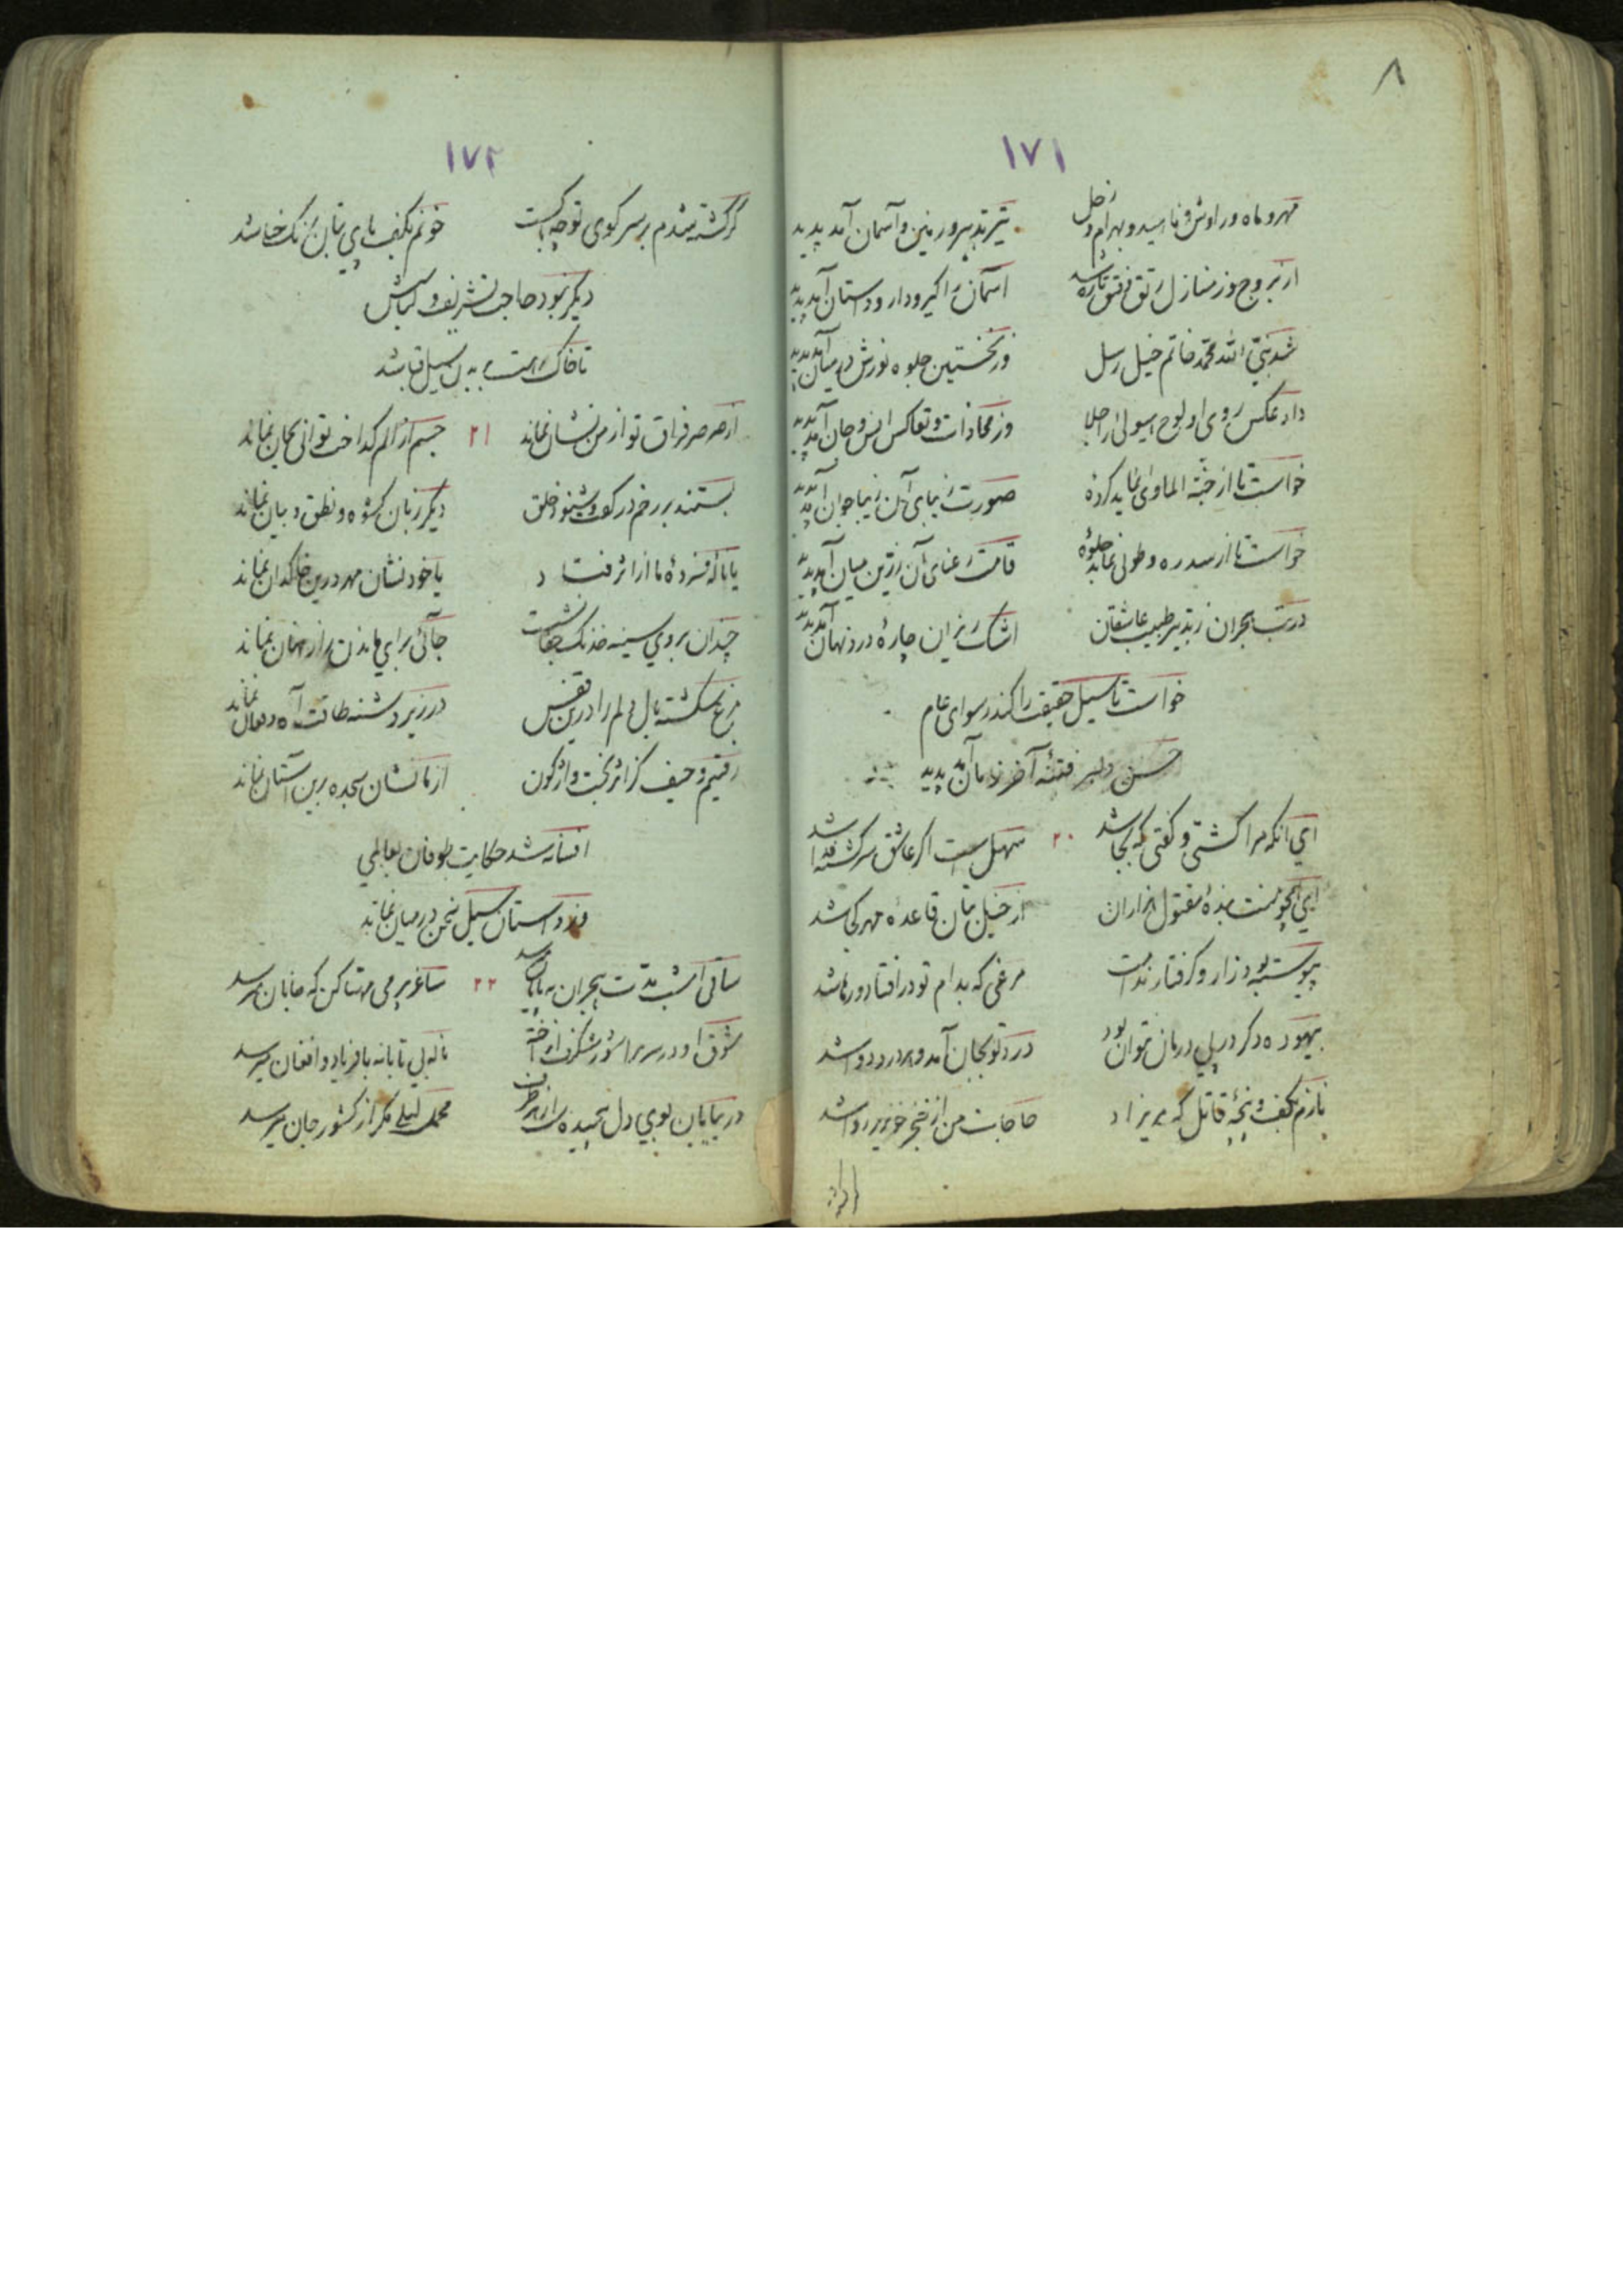 ٨
١٧١
مهر و ماه و راوش و ناهید و بهرام و زحل تیر تدبیر و زمین و آسمان آمد پدید
از بروج وز منازل رتق و فتق تازه شد آسمان را گیر و دار و داستان آمد پدید
شد نبی الله محمد خاتم خیل رسل وز نخستین جلوه نورش در میان آمد پدید
داد عکس روی او لوح هیولی را جلا وز محاذات و تعاکس انس و جان آمد پدید
خواست تا از جنة الماوی نماید صورت زیبای آن زیبا جوان آمد پدید
خواست تا از سدره و طوبی نماید جلوهٔ قامت رعنای آن زرین میان آمد پدید
در تب هجران ز تدبیر طبیب عاشقان اشک ریزان چارهٔ درد نهان آمد پدید
خواست تا سیل حقیقت را کند رسوای عام
حسن دلبر فتنهٔ آخر زمان آمد پدید
ای آنکه مرا کشتی و گفتی که بجا شد ٢٠ سهل است اگر عاشق سرگشته فدا شد
ای همچو منت بندهٔ مقتول هزاران از خیل بتان قاعده مهر کجا شد
پیوسته بود زار و گرفتار ندامت مرغی که بدام تو در افتاد و رها شد
بیهوده دگر در پی درمان نتوان بود درد تو بجان آمد و هر درد دوا شد
نازم بکف و پنجهٔ قاتل که مریزاد حاجات من از خنجر خونریز روا شد
١٧٢
گر کشته شدم بر سر کوی تو چه باکست خونم بکف پای بتان رنگ حنا شد
دیگر نبود حاجت تشریف و لباسش
تا خاک رهت بر بدن سیل قبا شد
از صرصر فراق تو از من نشان نماند ٢١ جسم از الم گداخت توانی بجان نماند
بستند بر رخم در گفت و شنود خلق دیگر زبان شکوه و نطق و بیان نماند
یا نالهٔ فسردهٔ ما از اثر فتاد یا خود نشان مهر درین خاکدان نماند
چندان بروی سینه خدنگ جفا نشست جائی برای ماندن راز نهان نماند
مرغ شکسته بال دلم را درین قفس در زیر دشنه طاقت آه و فغان نماند
رفتیم و حیف کز اثر بخت واژگون از ما نشان سجده برین آستان نماند
افسانه شد حکایت طوفان بعالمی
وز داستان سیل سخن در میان نماند
ساقی امشب مدت هجران بپایان میرسد ٢٢ ساغر پر می مهیا کن که جانان میرسد
شوق او در سر مرا شور شگرف انداخته ناله بی تابانه با فریاد و افغان میرسد
در بیابان بوی دل پیچیده است از هر طرف محمل لیلی مگر از کشور جان میرسد